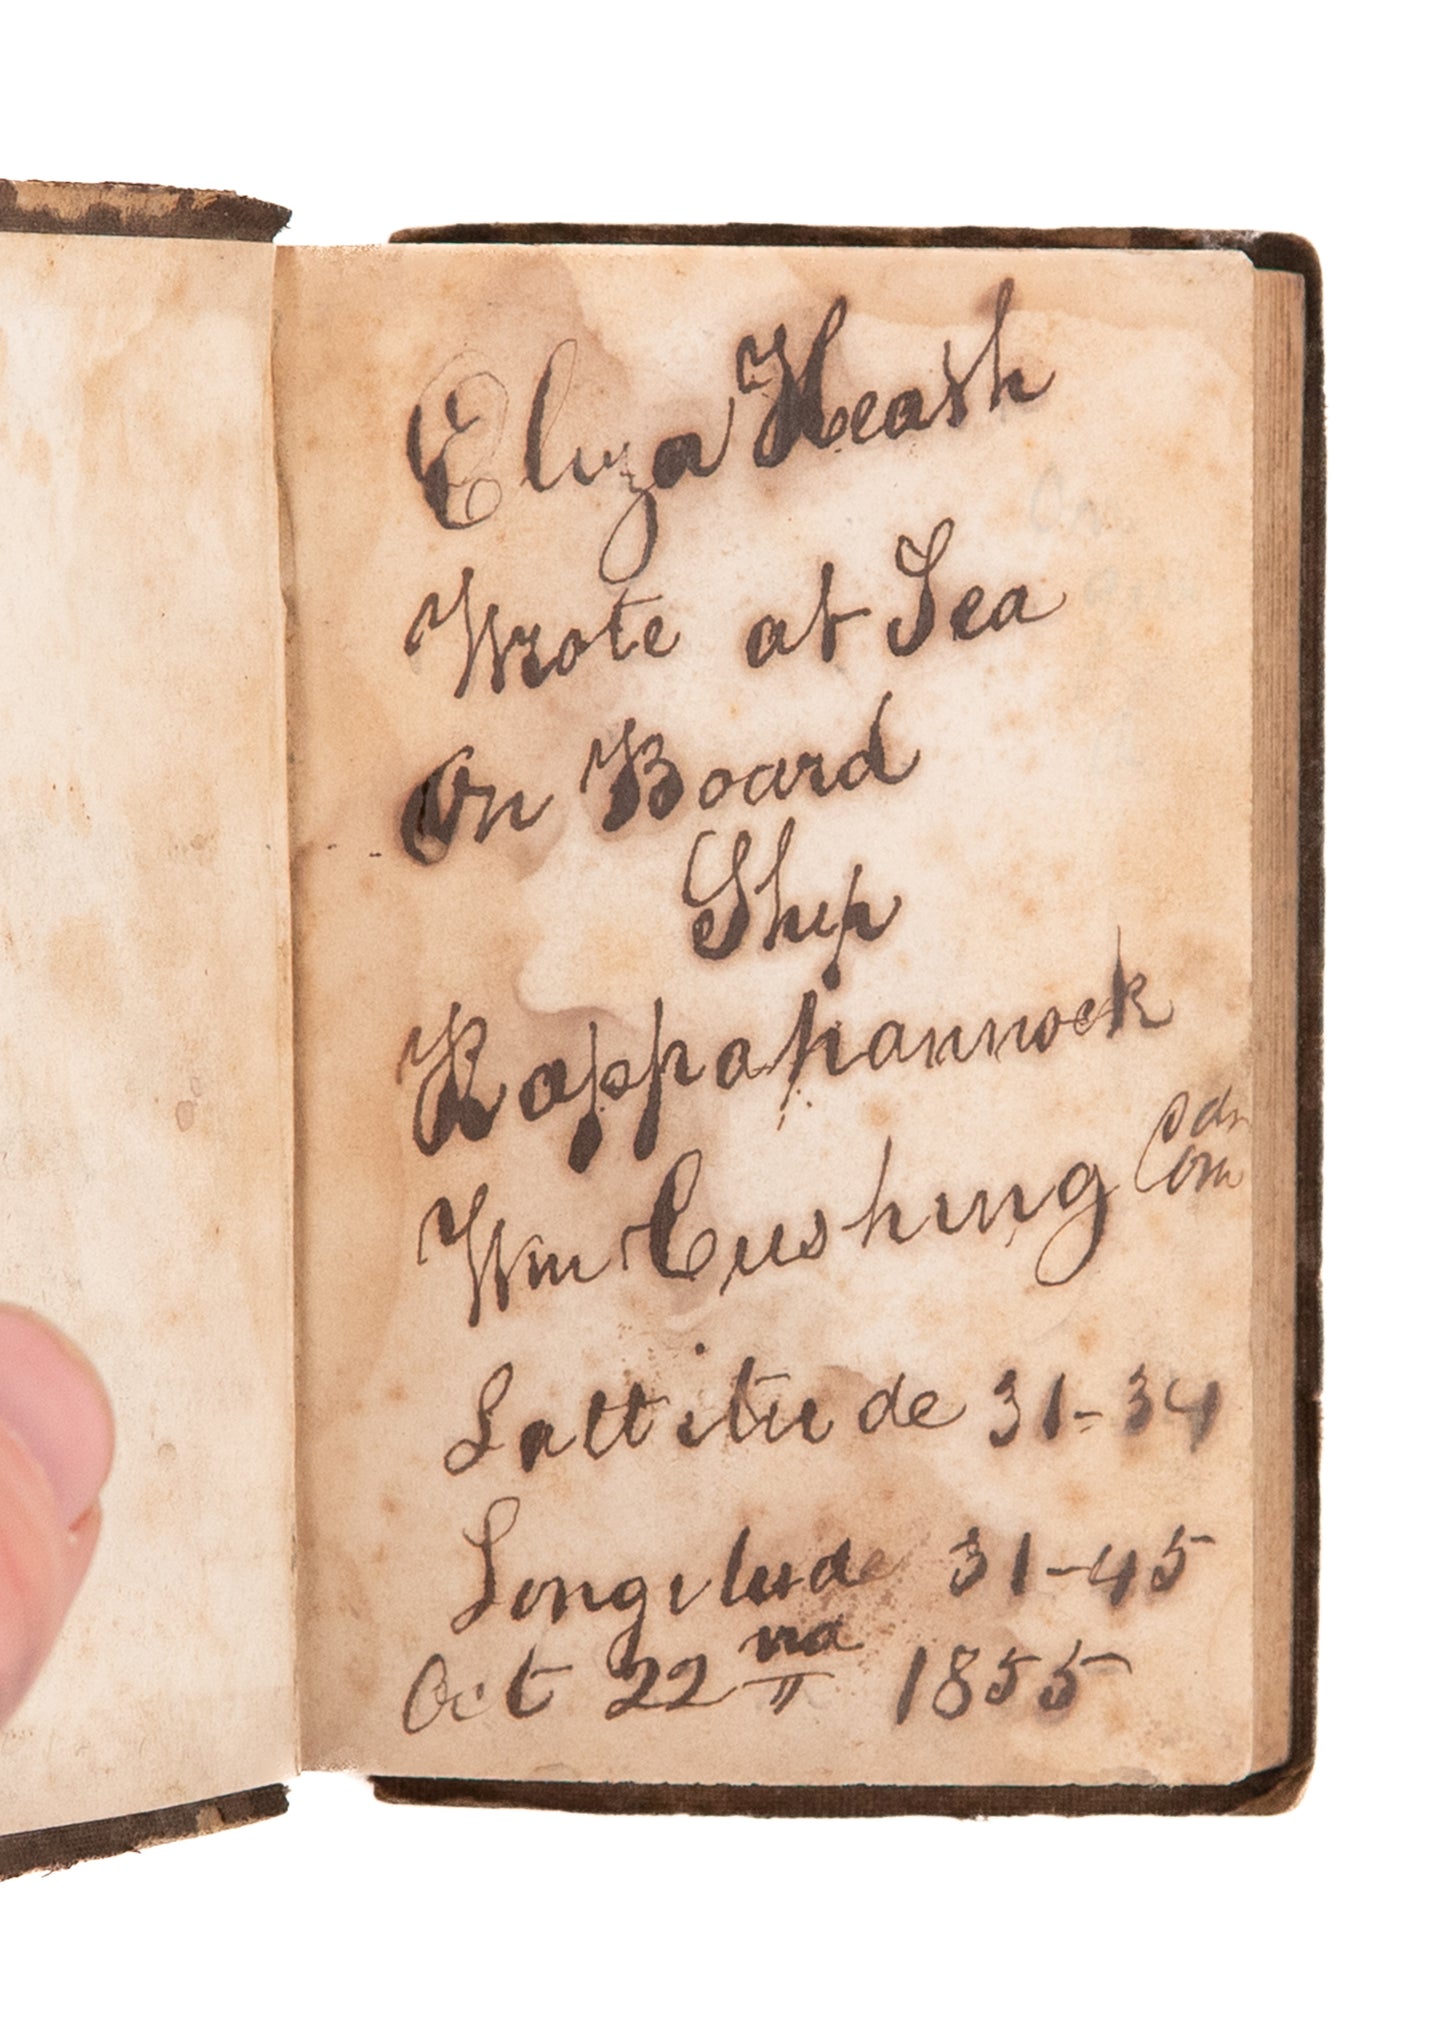 Eliza Heath
Wrote at Sea
On Board
Ship
Rappahannock
Wm Cushing Com
Lattitude 31-34
Longitude 31-45
Oct 22 nd 1855